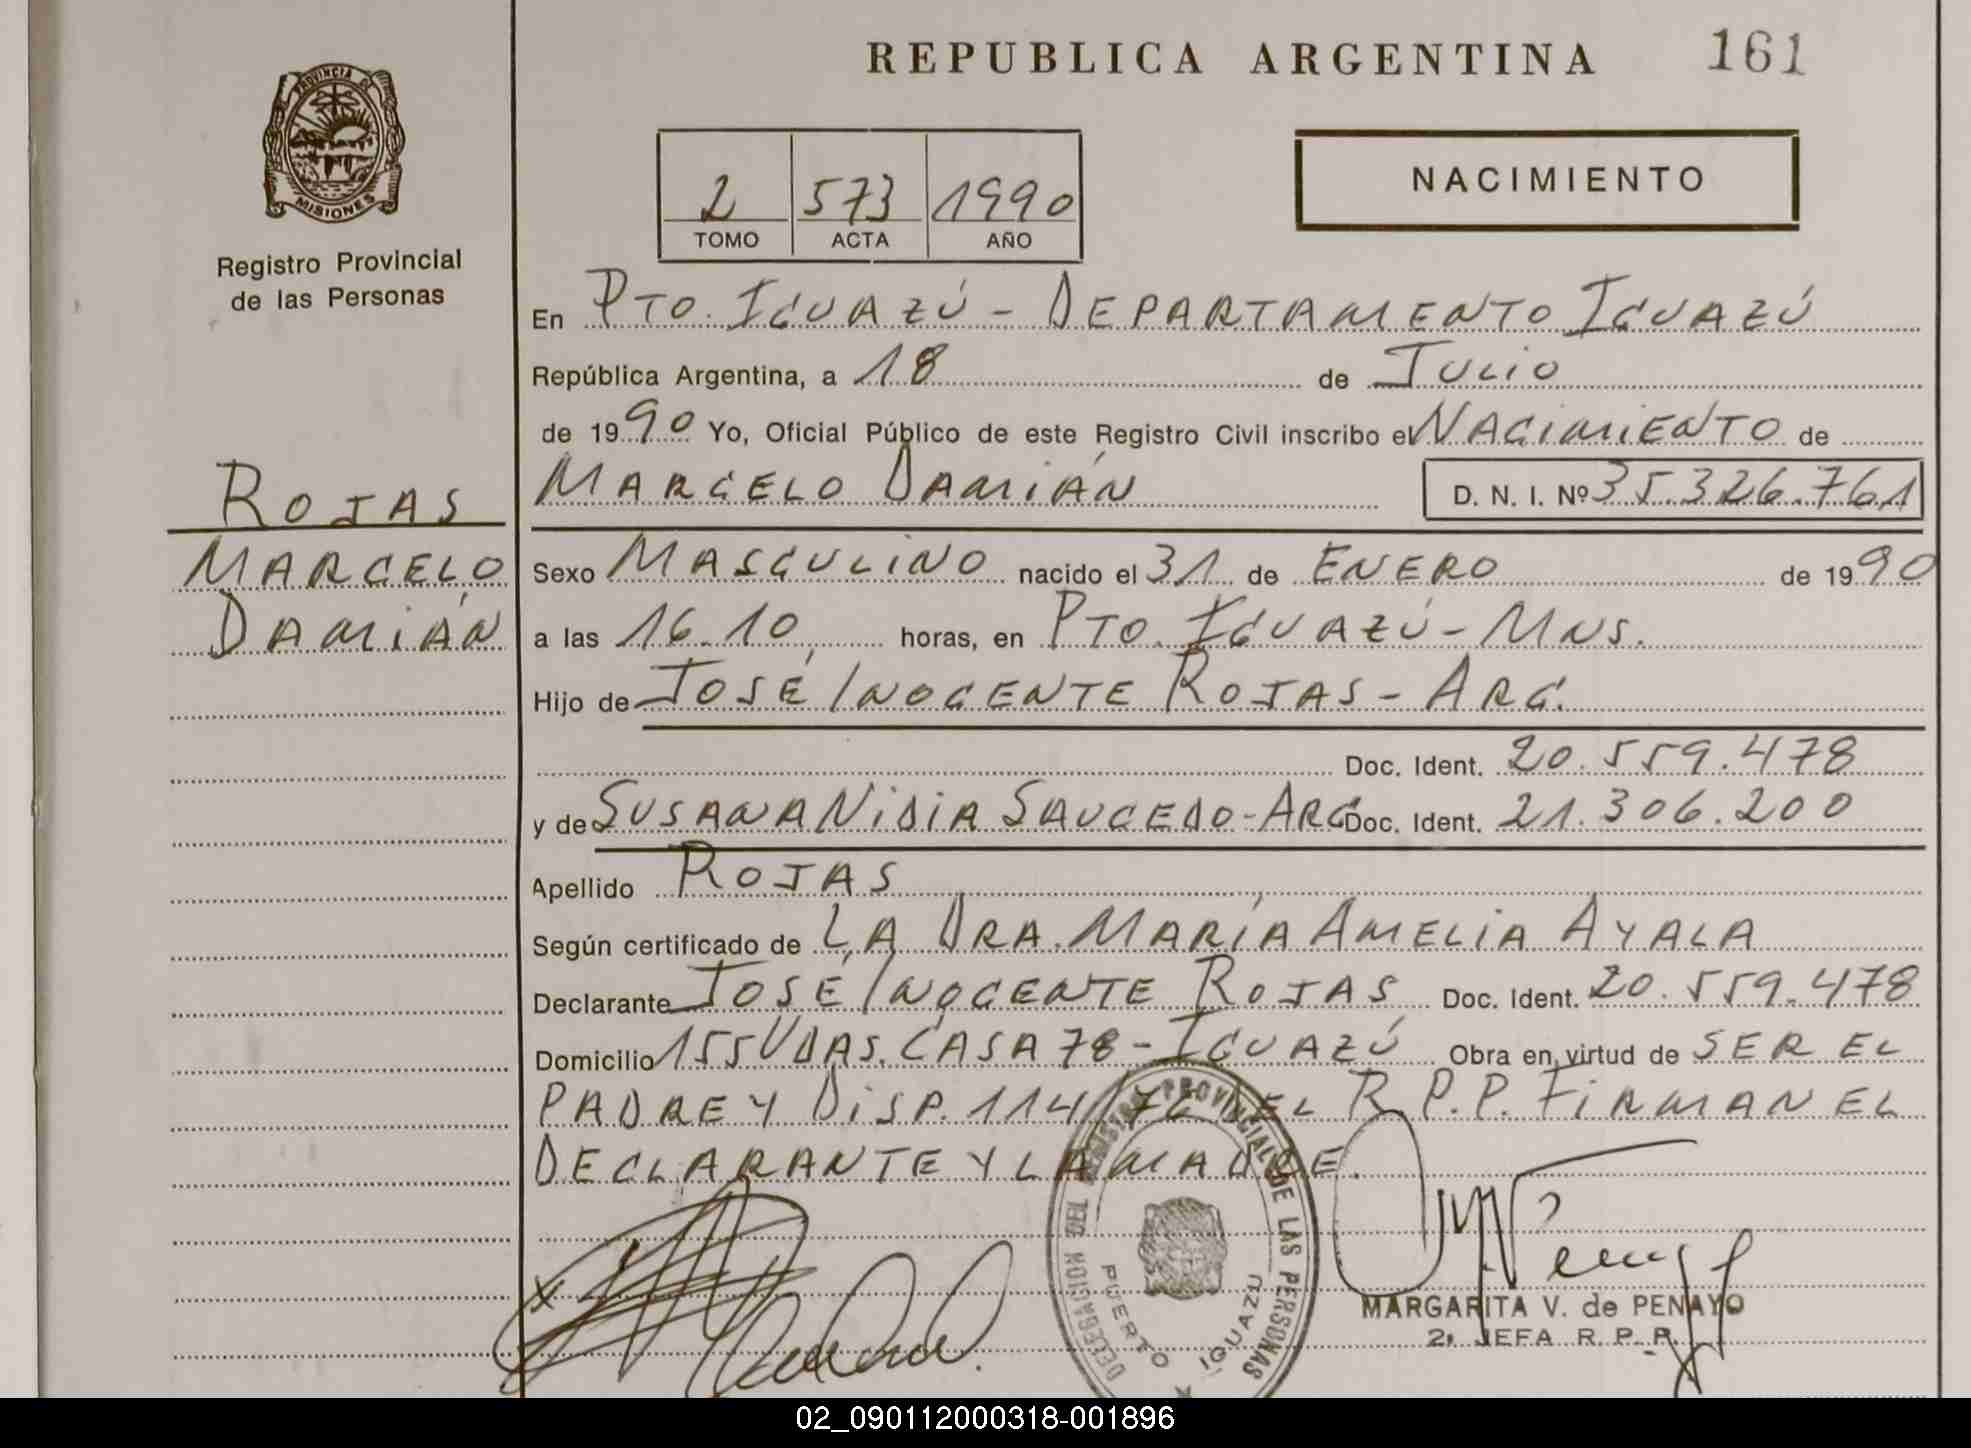 REPUBLICA ARGENTINA
161
PROVINCIA DE
MISIONES
Registro Provincial
de las Personas
2 573 1990
TOMO ACTA AÑO
NACIMIENTO
En PTO. IGUAZÚ - DEPARTAMENTO IGUAZÚ
República Argentina, a 18 de JULIO
de 1990 Yo, Oficial Público de este Registro Civil inscribo el NACIMIENTO de
MARCELO DAMIÁN D. N. I. Nº 35.326.761
ROJAS
MARCELO
DAMIÁN
Sexo MASCULINO nacido el 31 de ENERO de 1990
a las 16.10 horas, en PTO. IGUAZÚ - MNS.
Hijo de JOSÉ INOCENTE ROJAS - ARG.
Doc. Ident. 20.559.478
y de SUSANA NIDIA SAUCEDO - ARG Doc. Ident. 21.306.200
Apellido ROJAS
Según certificado de LA DRA. MARÍA AMELIA AYALA
Declarante JOSÉ INOCENTE ROJAS Doc. Ident. 20.559.478
Domicilio 155 VDAS. CASA 78 - IGUAZÚ Obra en virtud de SER EL
PADRE Y DISP. DEL R.P.P. FIRMAN EL
DECLARANTE Y LA MADRE.
DELEGACION DEL REGISTRO PROVINCIAL DE LAS PERSONAS
PUERTO IGUAZU
MARGARITA V. de PENAYO
2ª JEFA R. P. P.
02_090112000318-001896